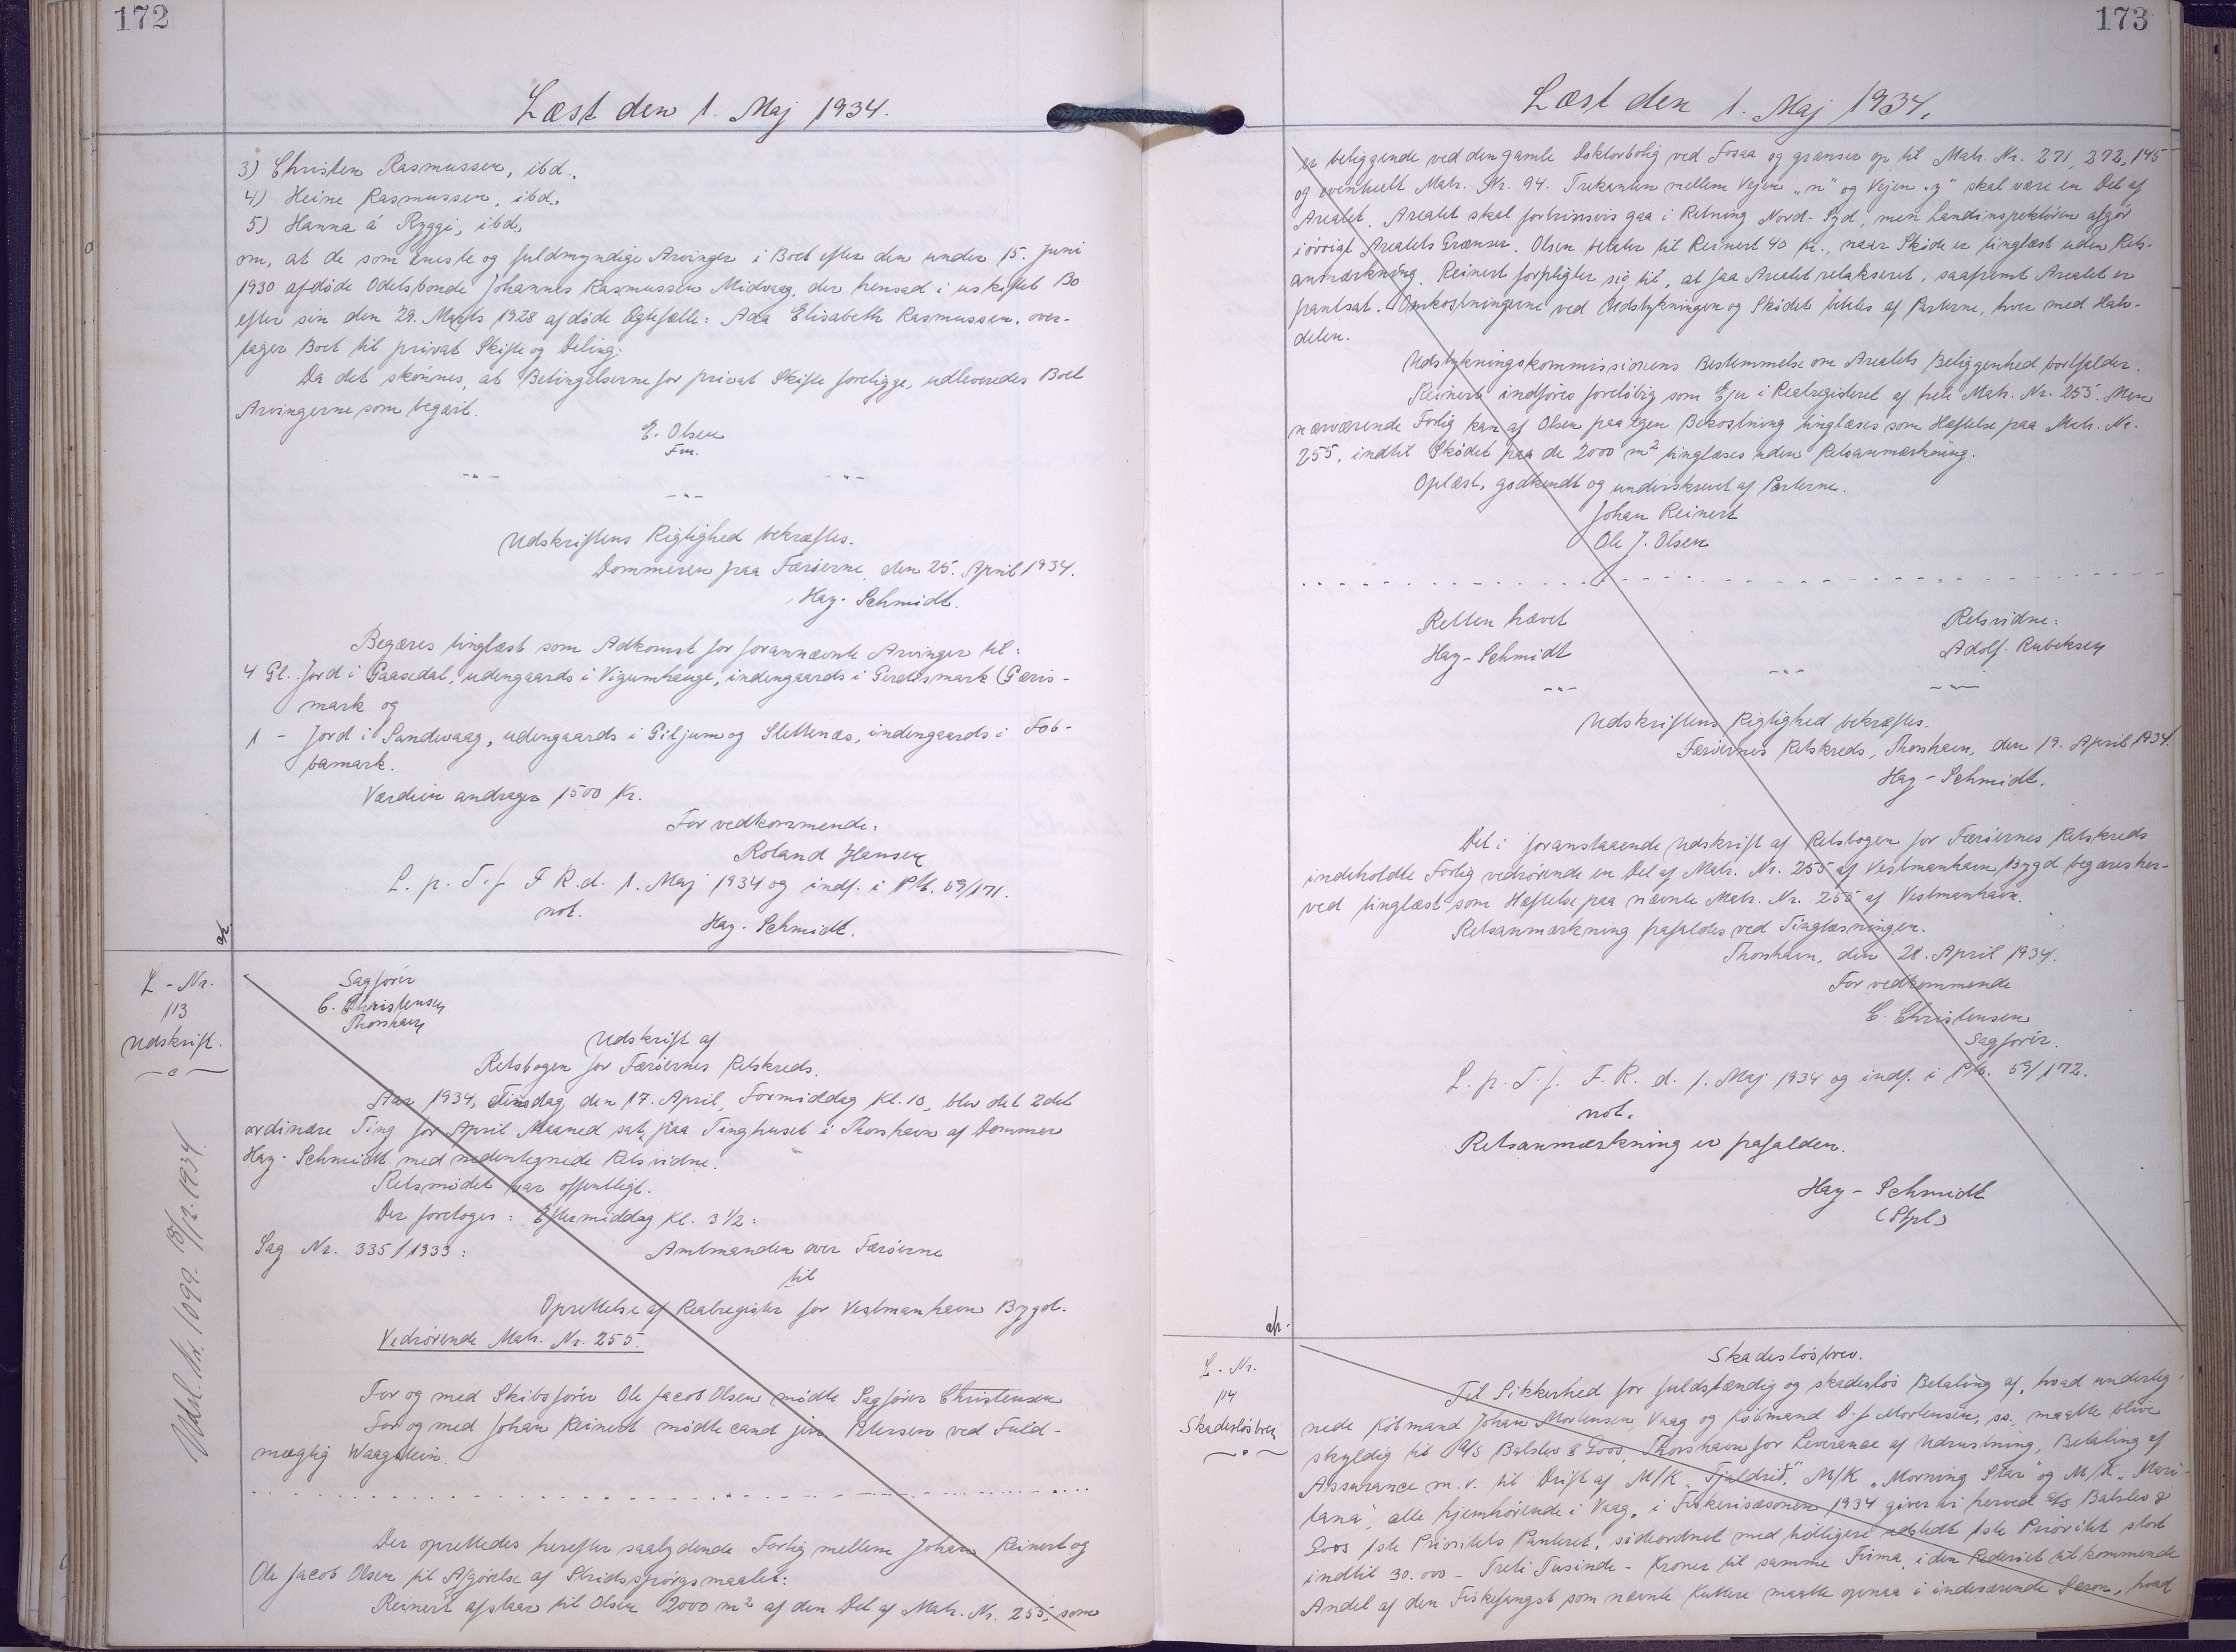 172
Læst den 1. Maj 1934.
3) Christen Rasmussen, ibd.,
4) Heine Rasmussen, ibd.,
5) Hanna á Ryggi, ibd.,
om, at de som eneste og fuldmyndige Arvinger i Boet efter den under 15. Juni
1930 afdøde Odelsbonde Johannes Rasmussen Midvaag, der hensad i uskiftet Bo
efter sin den 29. Marts 1928 afdøde Ægtefælle: Ada Elisabeth Rasmussen, over-
tager Boet til privat Skifte og Deling.
Da det skønnes, at Betingelserne for privat Skifte foreligge, udleveredes Boet
Arvingerne som begært.
E. Olsen
Fm.
Udskriftens Rigtighed bekræftes.
Dommeren paa Færøerne, den 25. April 1934.
Hay-Schmidt.
Begæres tinglæst som Adkomst for forannævnte Arvinger til:
4 Gl. Jord i Gaasedal, udengaards i Vigumhauge, indengaards i Gerdismark (Gæris-
mark og
1 - Jord i Sandevaag, udengaards i Giljum og Slettenæs, indengaards i Fob-
bamark.
Værdien andrager 1500 Kr.
For vedkommende:
Roland Hansen
L. p. T. f. F. R. d. 1. Maj 1934 og indf. i Pb. 59/171.
not.
Hay-Schmidt.
L-Nr.
113
Udskrift.
Udsl. Nr. 1099. 18/12. 1934.
Sagfører
C. Christensen
Thorshavn
Udskrift af
Retsbogen for Færøernes Retskreds.
Aar 1934, Tirsdag, den 17. April, Formiddag Kl. 10, blev det 2det
ordinære Ting for April Maaned sat paa Tinghuset i Thorshavn af Dommer
Hay-Schmidt med nedentegnede Retsvidne.
Retsmødet var offentligt.
Der foretoges: Eftermiddag Kl. 3 1/2:
Sag Nr. 335/1933: Amtmanden over Færøerne
til
Oprettelse af Realregister for Vestmanhavn Bygd.
Vedrørende Matr. Nr. 255.
For og med Skibsfører Ole Jacob Olsen mødte Sagfører Christensen
For og med Johan Reinert mødte cand jur Petersen ved Fuld-
mægtig Waagstein.
Der oprettedes herefter saalydende Forlig mellem Johan Reinert og
Ole Jacob Olsen til Afgørelse af Stridsspørgsmaalet:
Reinert afstaar til Olsen 2000 m² af den Del af Matr. Nr. 255, som
173
Læst den 1. Maj 1934.
er beliggende ved den gamle Doktorbolig ved Fosaa og grænser op til Matr. Nr. 271, 272, 145
og eventuelt Matr. Nr. 94. Trekanten mellem Vejen „n" og Vejen „y" skal være en Del af
Arealet. Arealet skal fortrinsvis gaa i Retning Nord-Syd, men Landinspektøren afgør
iøvrigt Arealets Grænser. Olsen betaler til Reinert 40 Kr., naar Skøde er tinglæst uden Rets-
anmærkning. Reinert forpligter sig til, at faa Arealet relakseret, saafremt Arealet er
pantsat. Omkostningerne ved Udstykningen og Skødet betales af Parterne, hver med Halv-
delen.
Udstykningskommissionens Bestemmelse om Arealets Beliggenhed bortfalder.
Reinert indføres foreløbig som Ejer i Realregisteret af hele Matr. Nr. 255. Men
nærværende Forlig kan af Olsen paa egen Bekostning tinglæses som Hæftelse paa Matr. Nr.
255, indtil Skødet paa de 2000 m² tinglæses uden Retsanmærkning.
Oplæst, godkendt og underskrevet af Parterne.
Johan Reinert
Ole J. Olsen
Retten hævet Retsvidne:
Hay-Schmidt Adolf Rubeksen
Udskriftens Rigtighed bekræftes.
Færøernes Retskreds, Thorshavn, den 19. April 1934.
Hay-Schmidt.
Det i foranstaaende Udskrift af Retsbogen for Færøernes Retskreds
indeholdte Forlig vedrørende en Del af Matr. Nr. 255 af Vestmanhavn Bygd begæres her-
ved tinglæst som Hæftelse paa nævnte Matr. Nr. 255 af Vestmanhavn.
Retsanmærkning frafaldes ved Tinglæsningen.
Thorshavn, den 28. April 1934.
For vedkommende
C. Christensen
Sagfører.
L. p. T. f. F. R. d. 1. Maj 1934 og indf. i Pb. 59/172.
not.
Retsanmærkning er frafalden.
Hay-Schmidt
(Stpl)
L-Nr.
114
Skadesløsbrev
Skadesløsbrev.
Til Sikkerhed for fuldstændig og skadesløs Betaling af, hvad underteg-
nede Købmand Johan Mortensen, Vaag og Købmand D. J. Mortensen, ss., maatte blive
skyldig til A/S Balslev & Loos, Thorshavn for Leverance af Udrustning, Betaling af
Assurance m. v. til Drift af M/K „Tjaldrið", M/K „Morning Star" og M/K „Mari-
tana", alle hjemhørende i Vaag, i Fiskerisæsonen 1934 giver vi herved A/S Balslev &
Loos 1ste Prioritets Panteret, sideordnet med tidligere udstedt 1ste Prioritet stort
indtil 30.000 - Treti Tusinde - Kroner til samme Firma, i den Rederiet tilkommende
Andel af den Fiskefangst som nævnte Kuttere maatte opnaa i indeværende Sæson, hvad